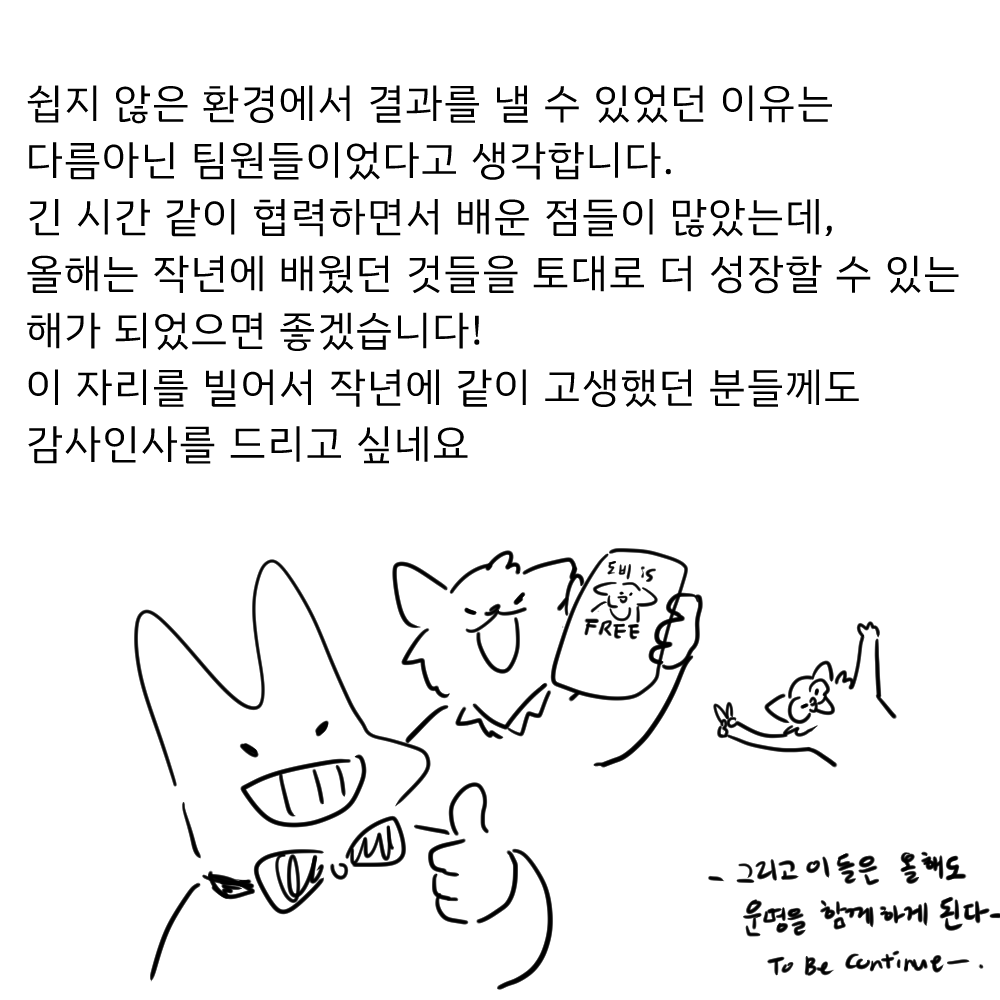 쉽지 않은 환경에서 결과를 낼 수 있었던 이유는
다름아닌 팀원들이었다고 생각합니다.
긴 시간 같이 협력하면서 배운 점들이 많았는데,
올해는 작년에 배웠던 것들을 토대로 더 성장할 수 있는
해가 되었으면 좋겠습니다!
이 자리를 빌어서 작년에 같이 고생했던 분들께도
감사인사를 드리고 싶네요
도비 is
FREE
- 그리고 이들은 올해도
운명을 함께하게 된다-
To Be Continue-.